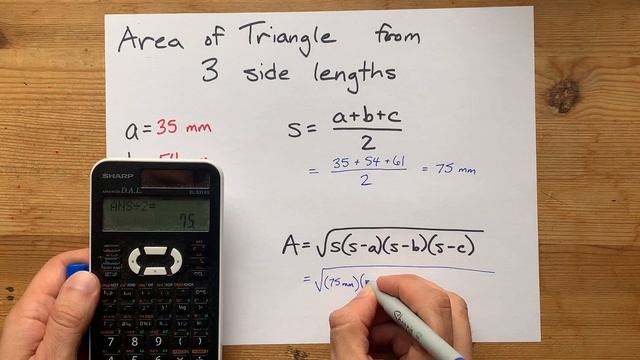 Area of Triangle from
3 side lengths
a = 35 mm
s = a+b+c / 2
= 35 + 54 + 61 / 2 = 75 mm
A = √s(s-a)(s-b)(s-c)
= √(75 mm)(
SHARP
D.A.L.
ANS÷2=
75.
7 8 9